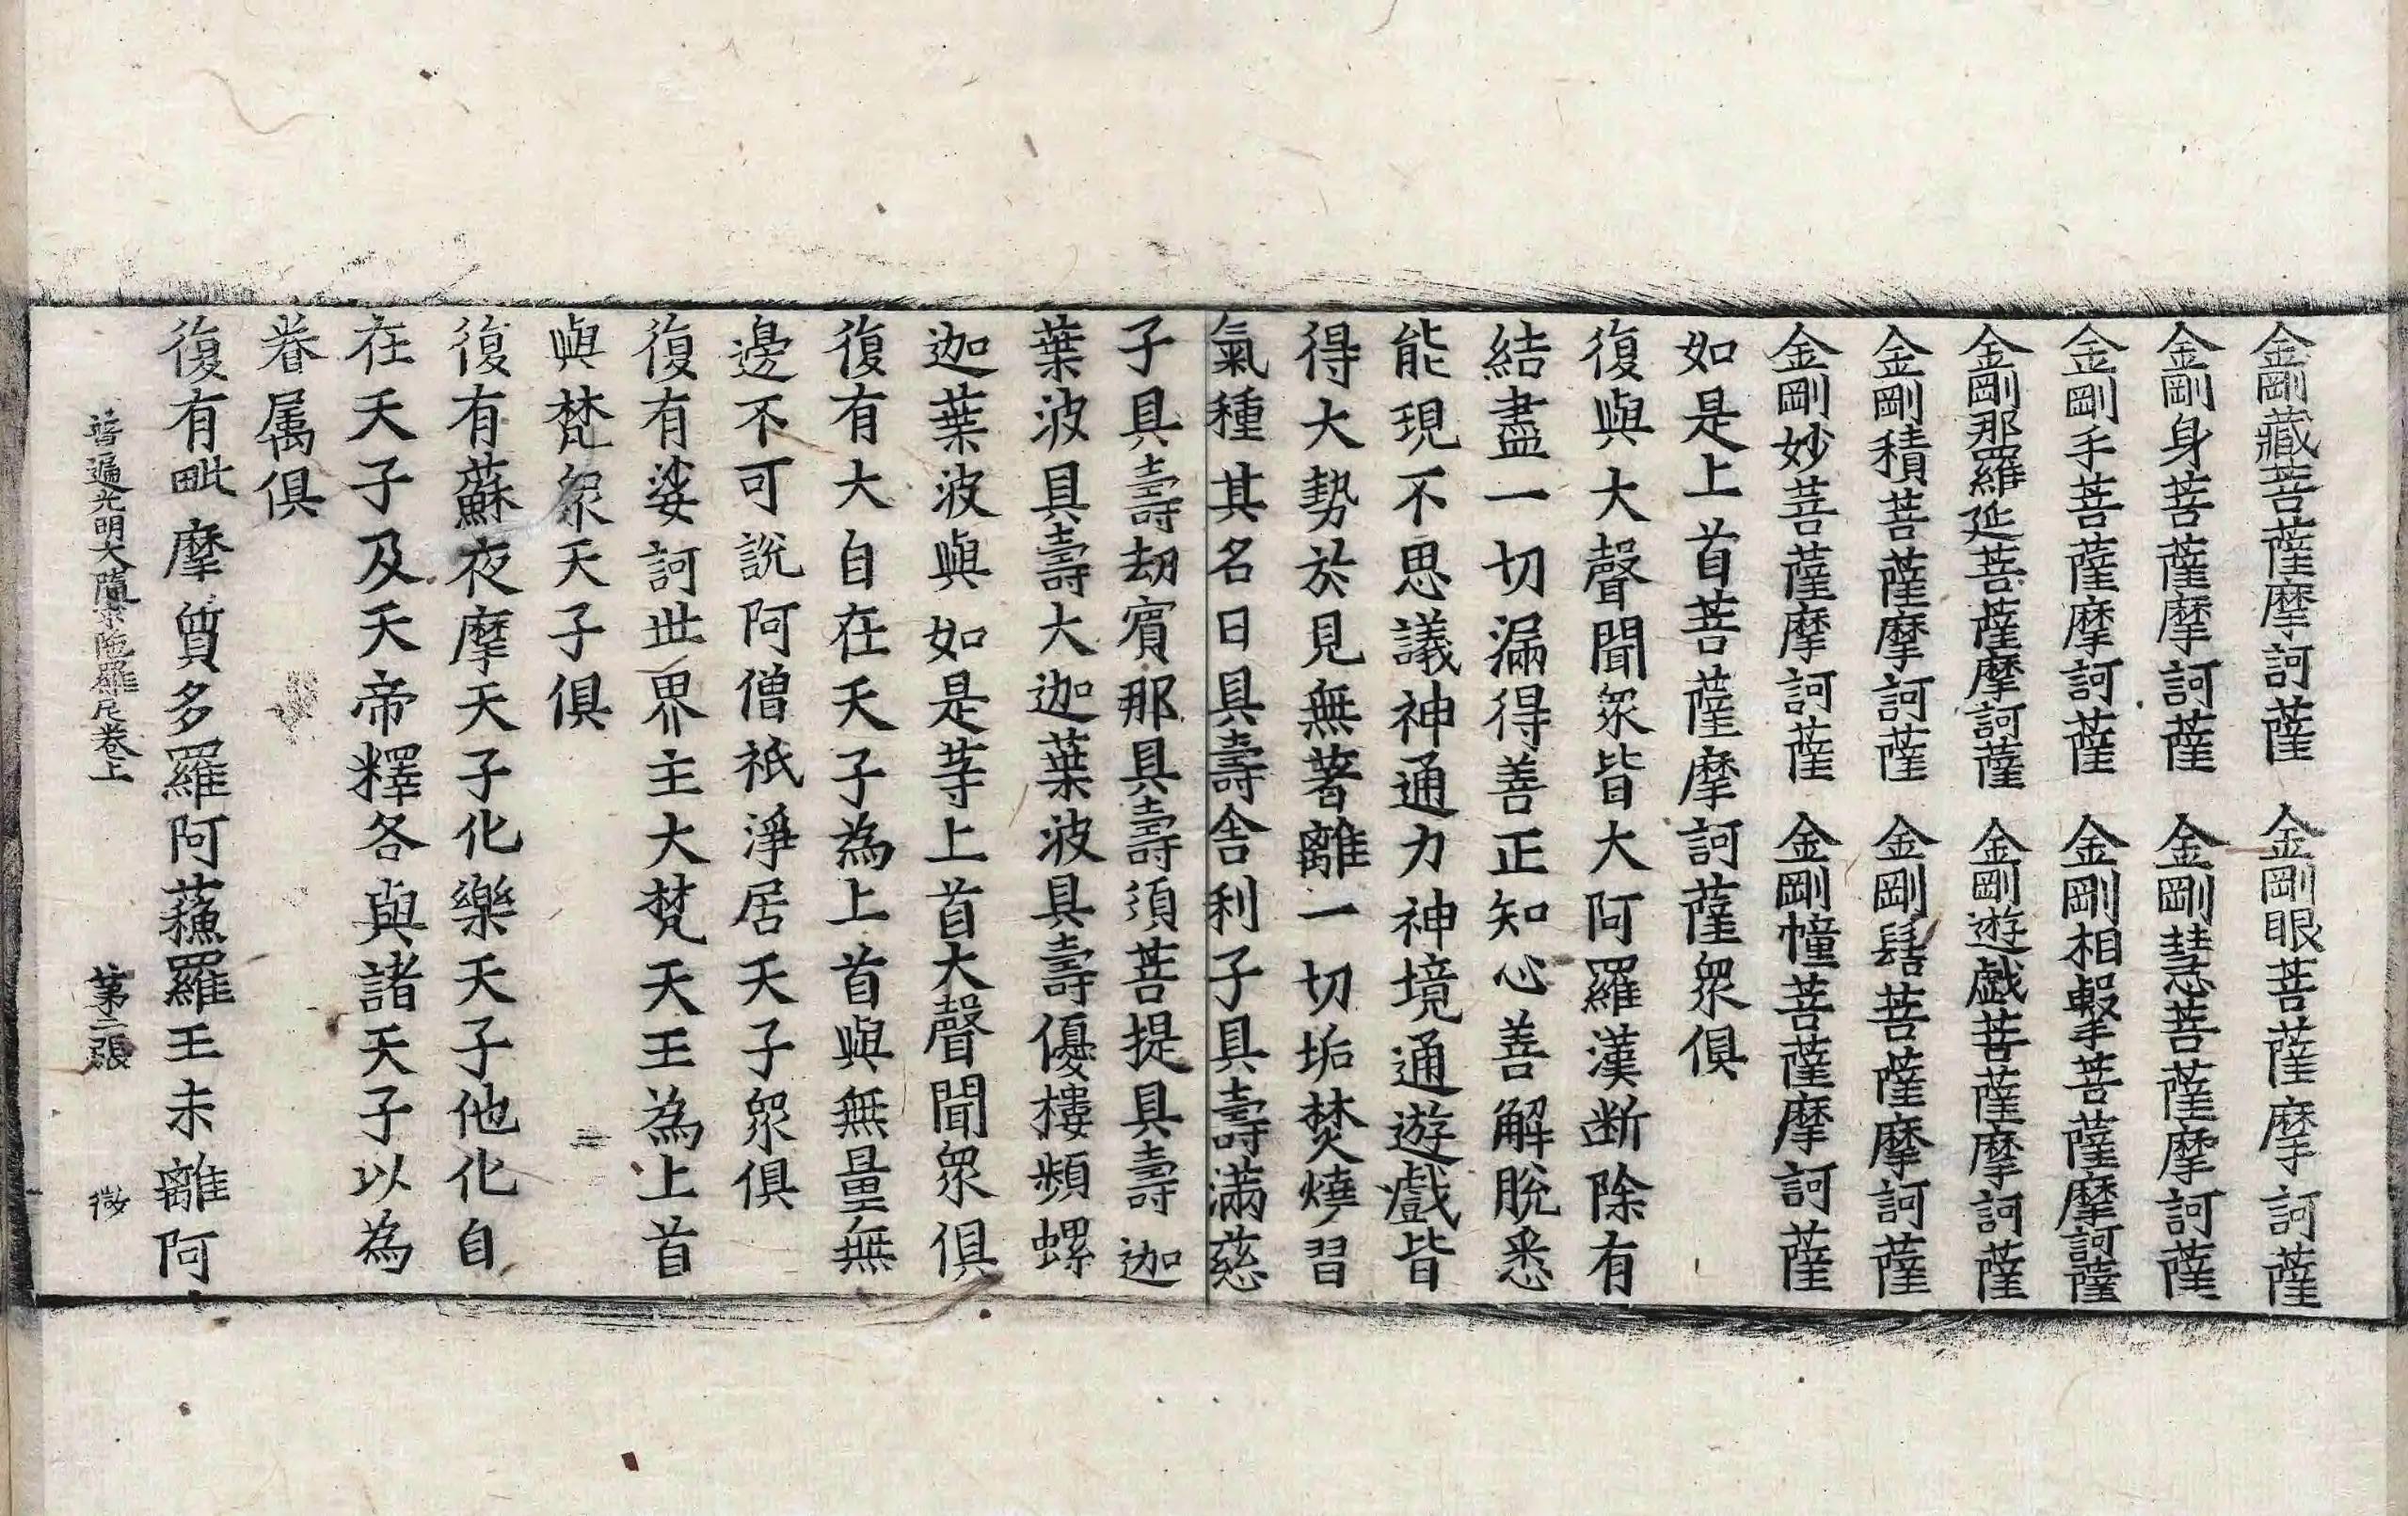 金剛藏菩薩摩訶薩 金剛眼菩薩摩訶薩
金剛身菩薩摩訶薩 金剛慧菩薩摩訶薩
金剛手菩薩摩訶薩 金剛相擊菩薩摩訶薩
金剛那羅延菩薩摩訶薩 金剛遊戲菩薩摩訶薩
金剛積菩薩摩訶薩 金剛髻菩薩摩訶薩
金剛妙菩薩摩訶薩 金剛幢菩薩摩訶薩
如是上首菩薩摩訶薩眾俱
復與大聲聞眾皆大阿羅漢断除有
結盡一切漏得善正知心善解脫悉
能現不思議神通力神境通遊戲皆
得大勢於見無著離一切垢焚燒習
氣種其名曰具壽舍利子具壽滿慈
子具壽劫賓那具壽須菩提具壽迦
葉波具壽大迦葉波具壽優樓頻螺
迦葉波與如是等上首大聲聞眾俱
復有大自在天子為上首與無量無
邊不可說阿僧祇淨居天子眾俱
復有娑訶世界主大梵天王為上首
與梵眾天子俱
復有蘇夜摩天子化樂天子他化自
在天子及天帝釋各與諸天子以為
眷属俱
復有毗摩質多羅阿蘓羅王未離阿
普遍光明大隨求陁羅尼卷上 苐二張 微